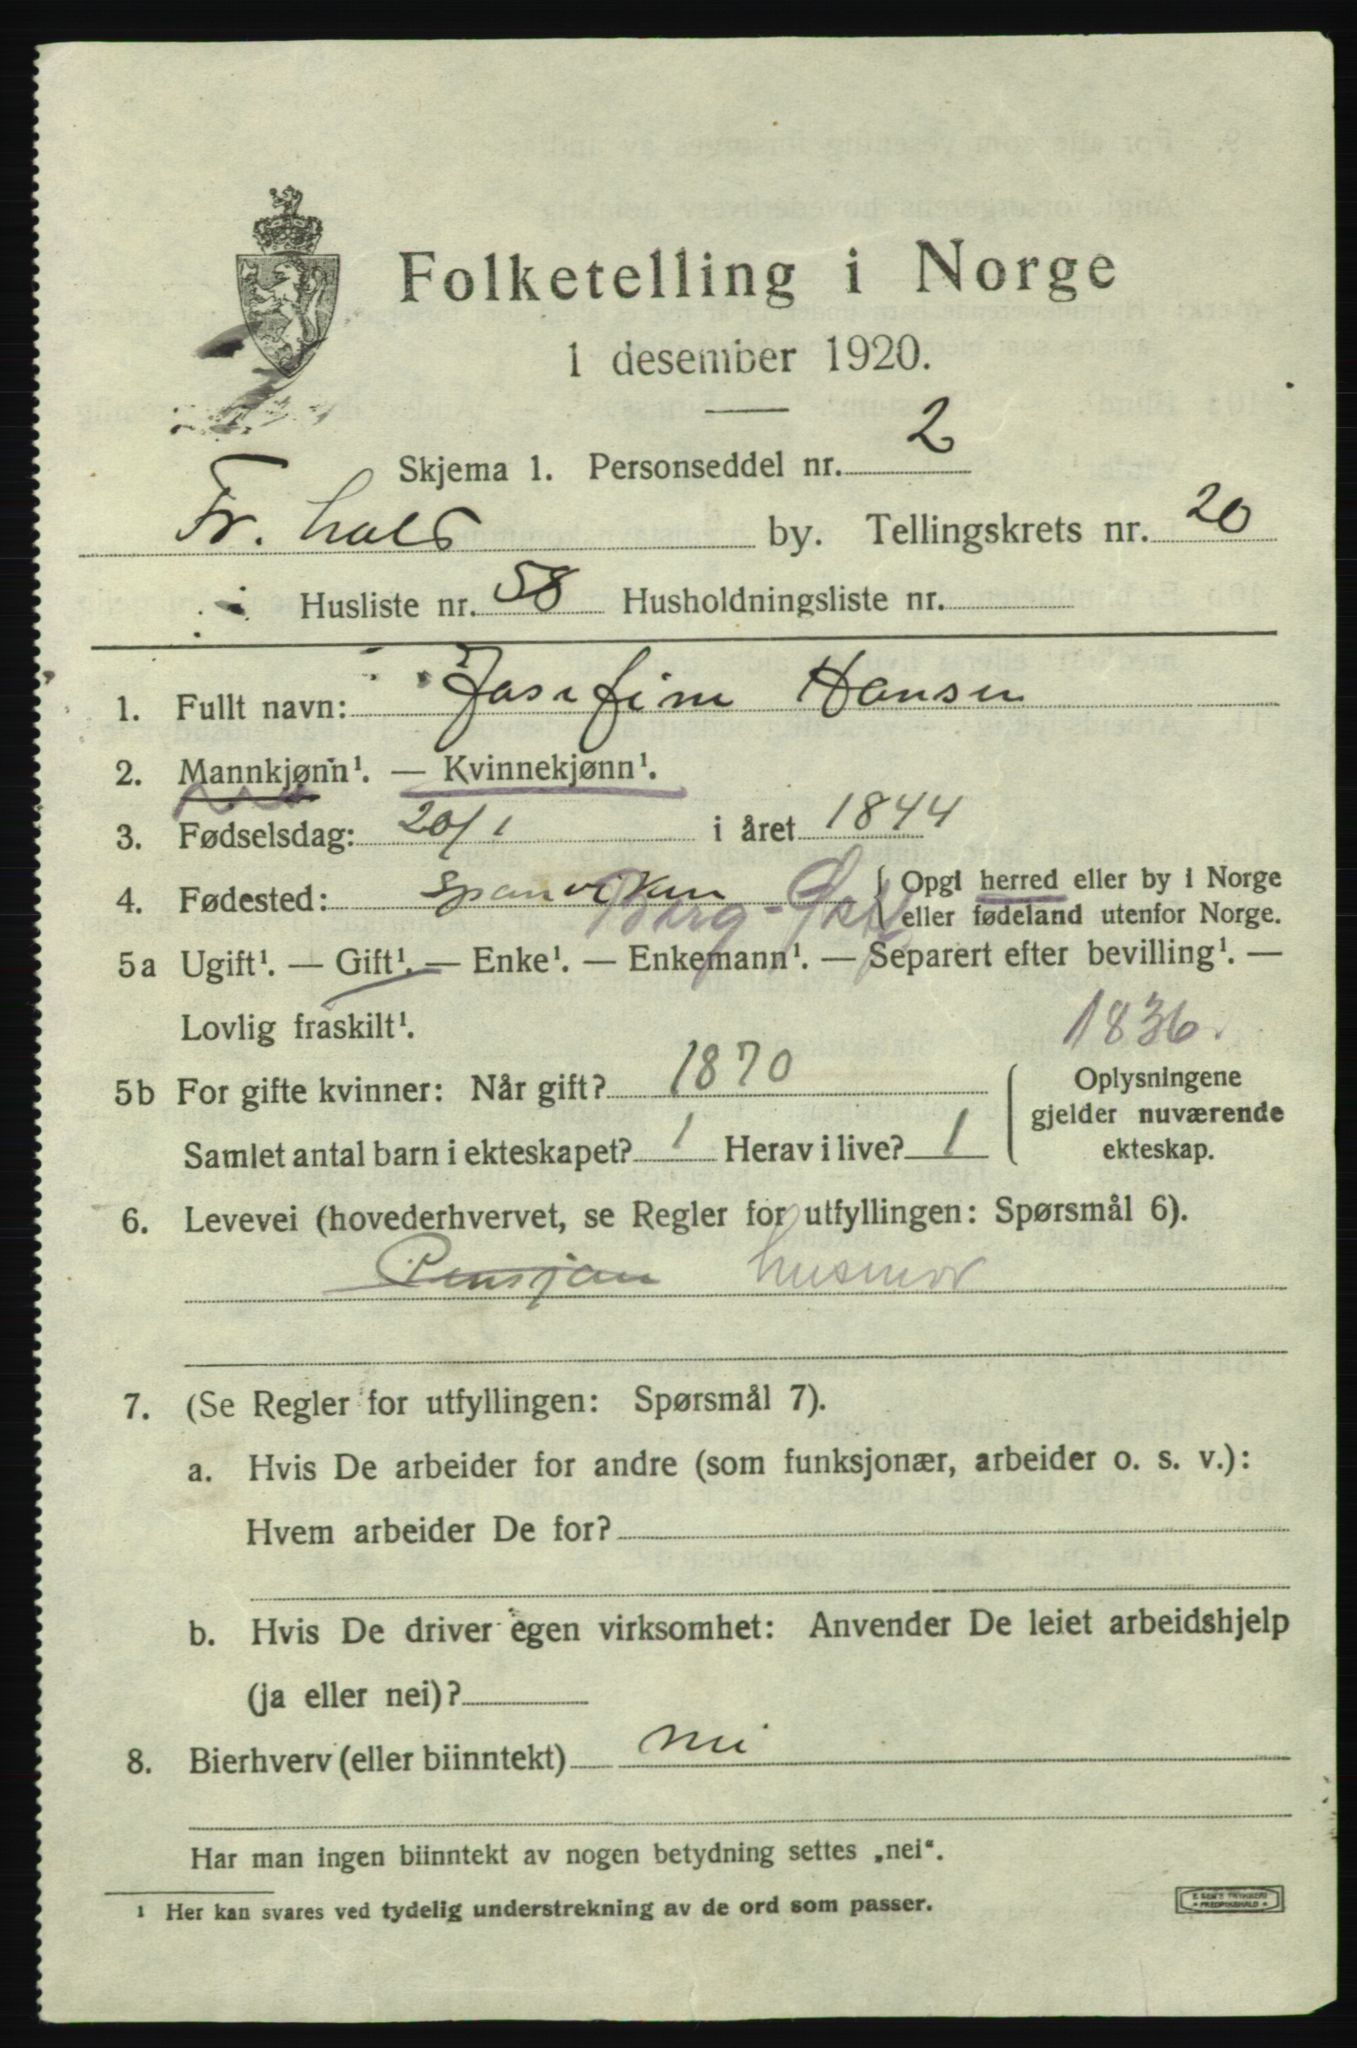 Folketelling i Norge
1 desember 1920.
Skjema 1. Personseddel nr. 2
Fr.hald by. Tellingskrets nr. 20
Husliste nr. 58 Husholdningsliste nr.
1. Fullt navn: Josefine Hansen
2. Mannkjønn¹. — Kvinnekjønn¹.
3. Fødselsdag: 20/1 i året 1844
4. Fødested: Sponvikan Berg - Østf { Opgi herred eller by i Norge
eller fødeland utenfor Norge.
5a Ugift¹. — Gift¹. — Enke¹. — Enkemann¹. — Separert efter bevilling¹. —
Lovlig fraskilt¹. 1836.
5b For gifte kvinner: Når gift? 1870 Oplysningene
gjelder nuværende
Samlet antal barn i ekteskapet? 1 Herav i live? 1 ekteskap.
6. Levevei (hovederhvervet, se Regler for utfyllingen: Spørsmål 6).
Pensjon husmor
7. (Se Regler for utfyllingen: Spørsmål 7).
a. Hvis De arbeider for andre (som funksjonær, arbeider o. s. v.):
Hvem arbeider De for?
b. Hvis De driver egen virksomhet: Anvender De leiet arbeidshjelp
(ja eller nei)?
8. Bierhverv (eller biinntekt) nei
Har man ingen biinntekt av nogen betydning settes „nei“.
¹ Her kan svares ved tydelig understrekning av de ord som passer.